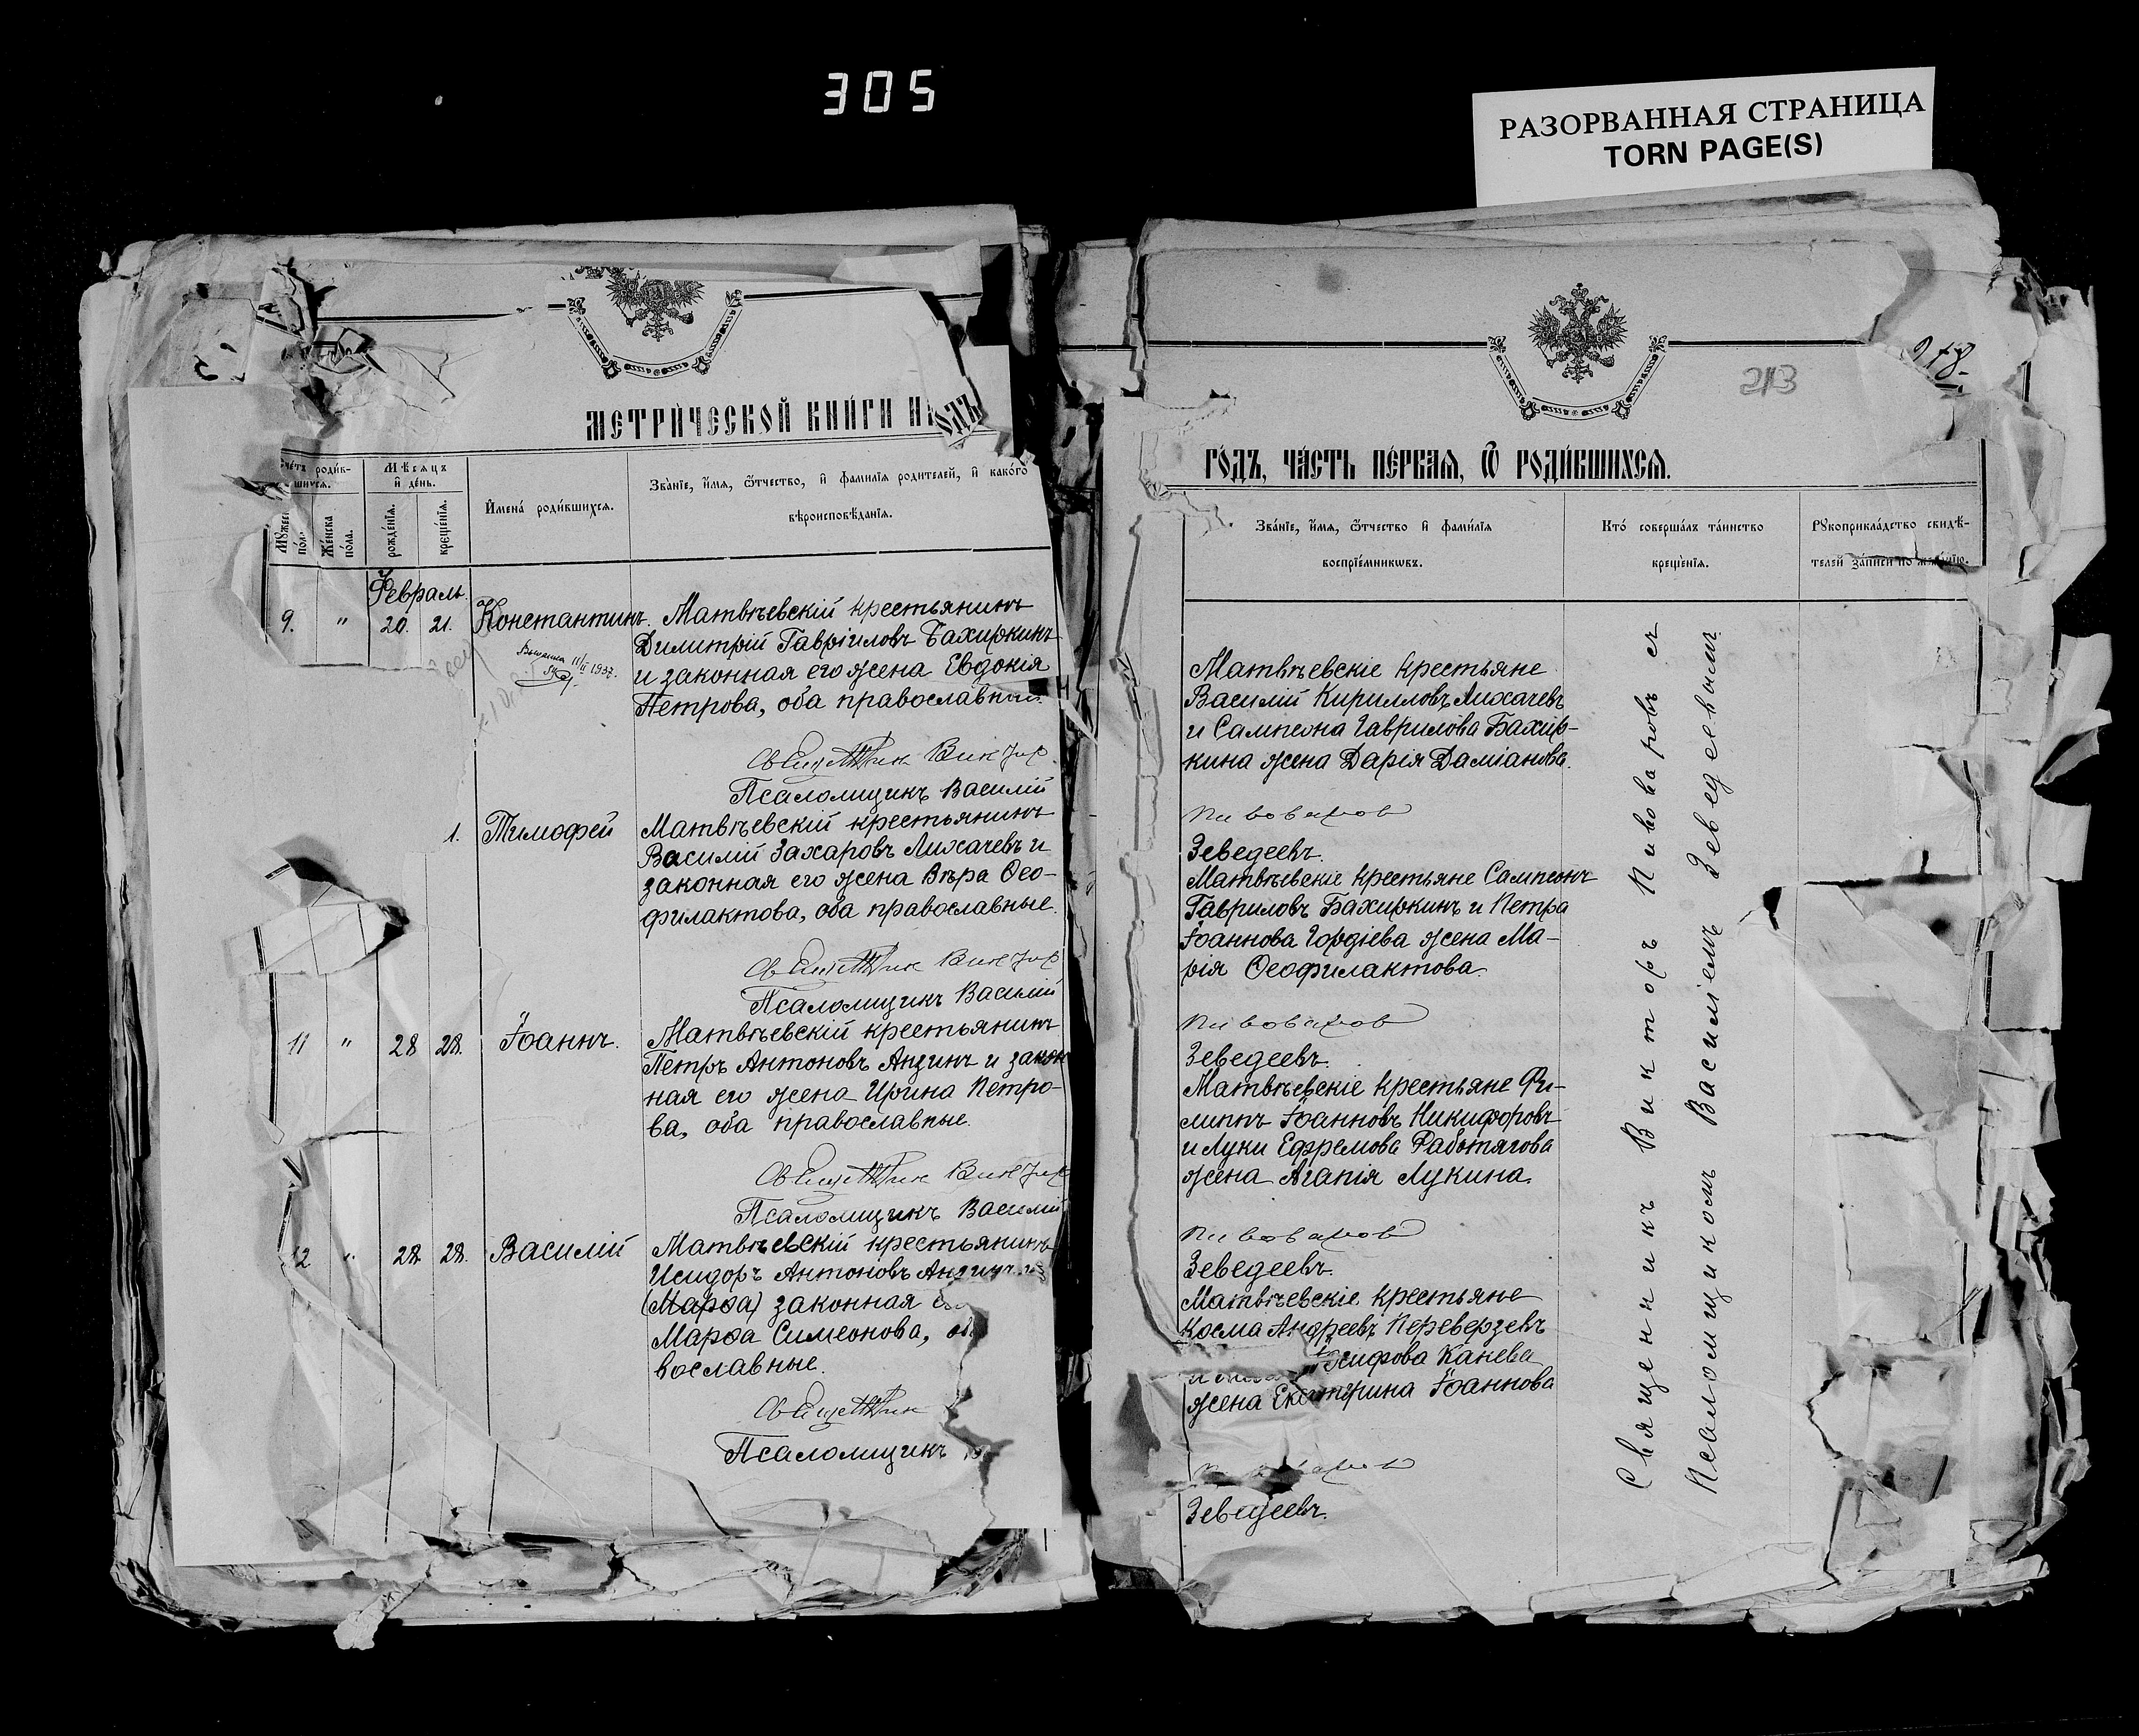 305
РАЗОРВАННАЯ СТРАНИЦА
TORN PAGE(S)
МЕТРИ́ЧЕСКОЙ КНИ́ГИ
Счетъ роди́в-
шихся.
Мѣсяцъ
и҆ де́нь.
Му́жеск
по́ла
Же́нска
по́ла.
рожде́нїя.
креще́нїя.
И҆мена́ роди́вшихся.
Зва́нїе, и҆́мя, ѻ҆́тчество, и҆ фами́лїя роди́телей, и҆ како́гѡ
вѣроисповѣ́данїя.
Февраль.
9. " 20. 21. Константинъ.
11/II 1937.
Матвѣевскій крестьянинъ
Димитрій Гавріиловъ Бахиркинъ
и законная его жена Евдокія
Петрова, оба православные.
Священник Виктор
Псаломщикъ Василій
1. Тимофей
Матвѣевскій крестьянинъ
Василій Захаровъ Лихачевъ и
законная его жена Вѣра Ѳео-
филактова, оба православные.
Священник Виктор
Псаломщикъ Василій
11 " 28 28. Іоаннъ.
Матвѣевскій крестьянинъ
Петръ Антоновъ Анзинъ и закон
ная его жена Ирина Петро-
ва, оба православные.
Священник Виктор
Псаломщикъ Василій
12 " 28. 28. Василій
Матвѣевскій крестьянинъ
Исидоръ Антоновъ
(Марѳа) законная
Марѳа Симеонова,
вославные.
Священник
Псаломщикъ
213
ГО́ДЪ, ЧА́СТЬ ПЕ́РВАЯ, Ѡ҆ РОДИ́ВШИХСЯ.
Зва́нїе, и҆́мя, ѻ҆́тчество и҆ фами́лїя
воспрїе́мникѡвъ.
Кто̀ соверша́лъ та́инство
креще́нїя.
Рꙋкоприкла́дство свидѣ́-
телей за́писи по жела́нїю.
Матвѣевскіе крестьяне
Василій Кирилловъ Лихачевъ
и Сампсона Гаврилова Бахир-
кина жена Дарія Даміанова.
Пивоваров
Зеведеевъ.
Матвѣевскіе крестьяне Сампсонъ
Гавриловъ Бахиркинъ и Петра
Іоаннова Гордіева жена Ма-
рія Ѳеофилактова.
Пивоваров
Зеведеевъ.
Матвѣевскіе крестьяне Фи-
липпъ Іоанновъ Никифоровъ
и Луки Ефремова Работягова
жена Агапія Лукина.
Пивоваров
Зеведеевъ.
Матвѣевскіе крестьяне
Косма Андреевъ Переверзевъ
Осифова Канева
жена Екатерина Іоаннова
Пивоваров
Зеведеевъ.
Священникъ Викторъ Пивоваровъ съ
Псаломщикомъ Василіемъ Зеведеевымъ